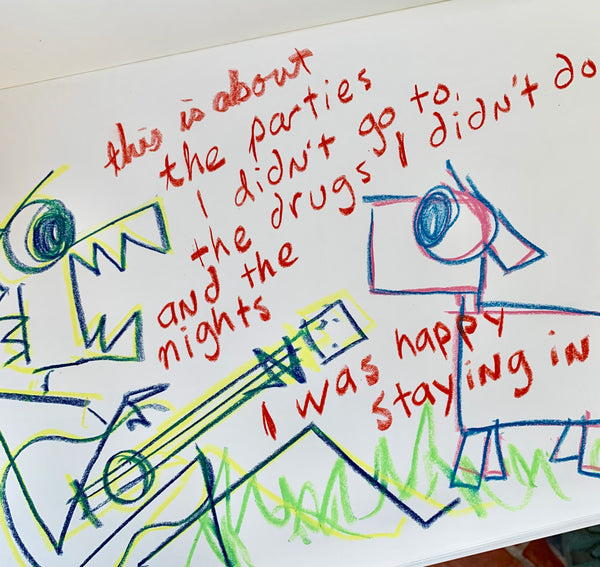 this is about
the parties
I didn't go to.
the drugs I didn't do
and the
nights
I was happy
staying in